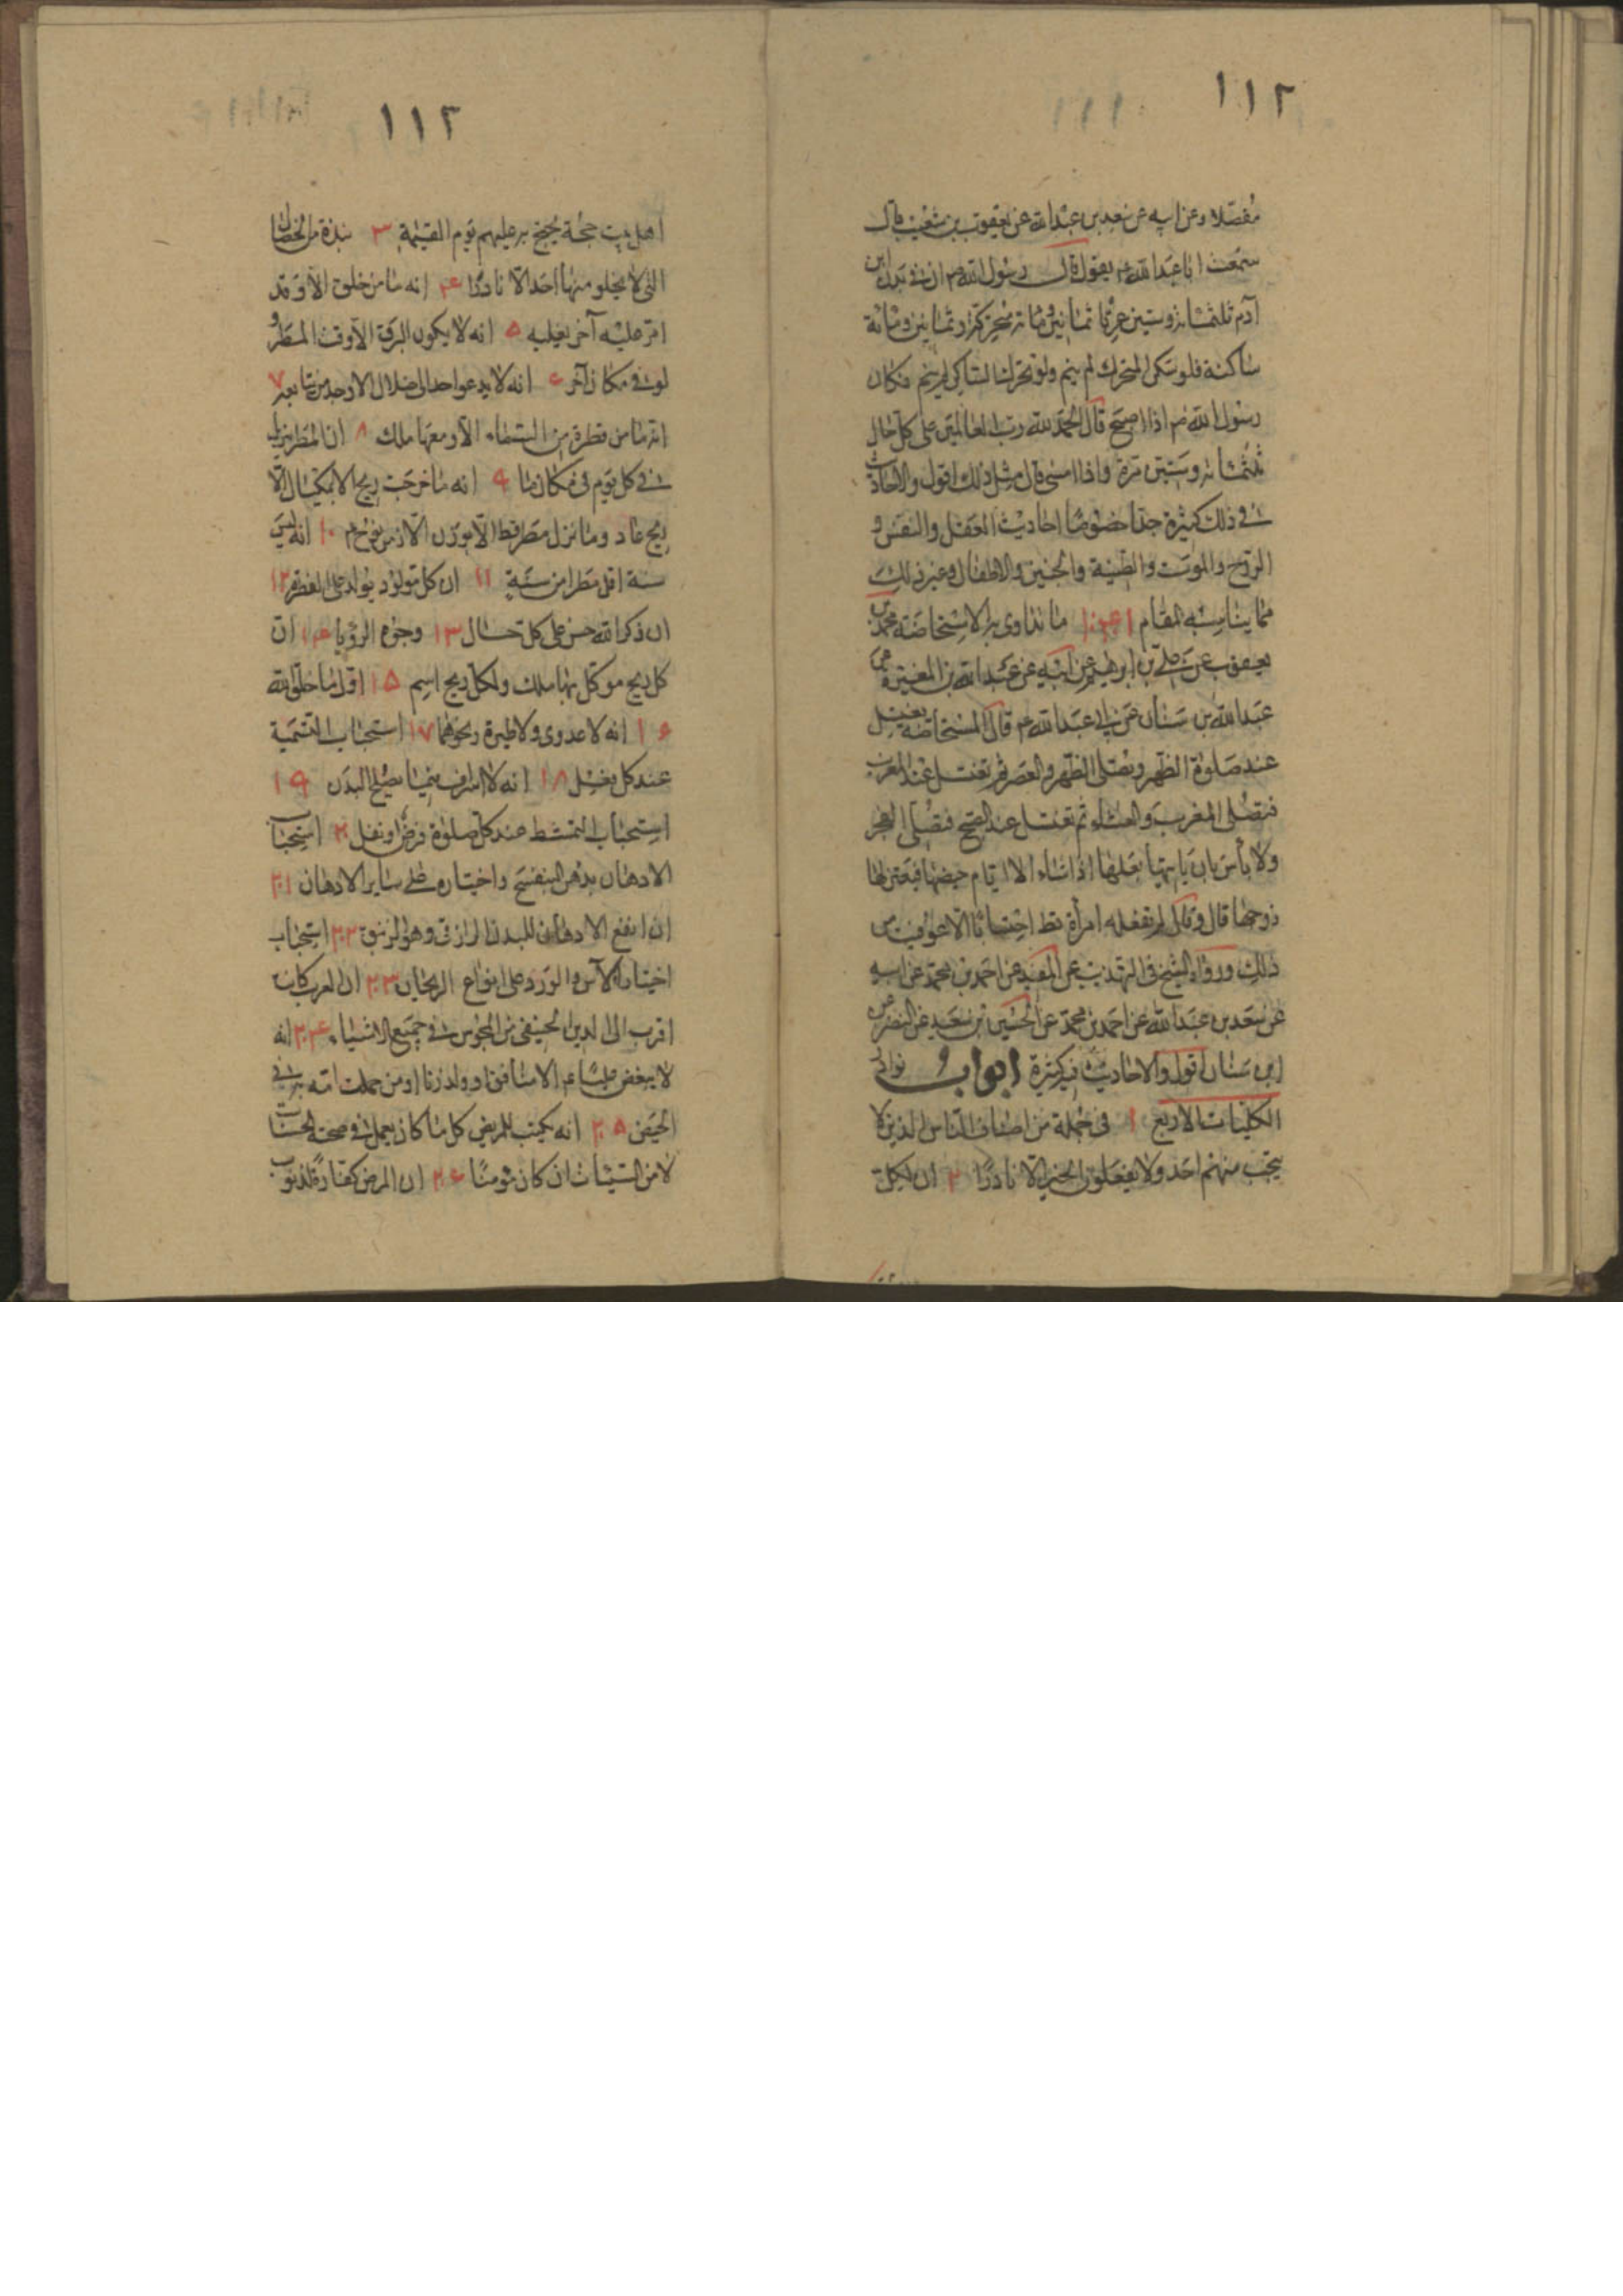 ١١٢
مفصلا وعن ابيه عن سعد بن عبد الله عن يعقوب بن شعيب قال
سمعت ابا عبد الله ع يقول قال رسول الله ص ان في بدن ابن
آدم ثلثمائة وستين عرقا ثمانين ومائة متحركة وثمانين ومائة
ساكنة فلو سكن المتحرك لم ينم ولو تحرك الساكن لم ينم فكان
رسول الله ص اذا اصبح قال الحمد لله رب العالمين على كل حال
ثلثمائة وستين مرة واذا امسى قال مثل ذلك اقول والاحاديث
في ذلك كثيرة جدا خصوصا احاديث العقل والنفس و
الروح والموت والطينة والجنين والاطفال وغير ذلك
مما يناسب المقام ما تداوى به الاستحاضة محمد بن
يعقوب عن علي بن ابرهيم عن ابيه عن عبد الله بن المغيرة عن
عبد الله بن سنان عن ابي عبد الله ع قال المستحاضة تغتسل
عند صلوة الظهر وتصلى الظهر والعصر ثم تغتسل عند المغرب
فتصلى المغرب والعشاء ثم تغتسل عند الصبح فتصلى الفجر
ولا باس بان ياتيها بعلها اذا شاء الا ايام حيضها فيعتزلها
زوجها قال وقال لم تفعله امرأة قط احتسابا الا عوفيت من
ذلك ورواه الشيخ في التهذيب عن المفيد عن احمد بن محمد عن ابيه
عن سعد بن عبد الله عن احمد بن محمد عن الحسين بن سعيد عن النضر عن
ابن سنان اقول والاحاديث فيه كثيرة ابواب نوادر
الكليات الاربع ١ في جملة من اصناف الناس الذين لا
ينجب منهم احد ولا يفعلون الخير الا نادرا ٢ ان لكل
١١٢
اهل بيت حجة يحتج بر عليهم يوم القيمة ٣ نبذة من الخصال
التي لا يخلو منها احد الا نادرا ۴ انه ما من خلق الا وقد
امر عليه آخر يغلبه ۵ انه لا يكون البرق الا وقت المطر و
لو في مكان آخر ۶ انه لا يدعو احد الى ضلال الا وجد من يتابعه ٧
انه ما من قطرة من السماء الا ومعها ملك ٨ ان المطر ينزل
في كل يوم في مكان ما ٩ انه ما خرجت ريح الا بمكيال الا
ريح عاد وما نزل مطر قط الا بوزن الا زمن نوح ع ١٠ انه ليس
سنة اقل مطرا من سنة ١١ ان كل مولود يولد على الفطرة ١٢
ان ذكر الله حسن على كل حال ١٣ وجوه الرؤيا ١۴ ان
كل ريح موكل بها ملك ولكل ريح اسم ١۵ اول ما خلق الله
١۶ انه لا عدوى ولا طيرة ونحوهما ١٧ استحباب التسمية
عند كل فعل ١٨ انه لا اسراف فيما يصلح البدن ١٩
استحباب التمشط عند كل صلوة فرض او نفل ٢٠ استحباب
الادهان بدهن البنفسج واختياره على ساير الادهان ٢١
ان انفع الادهان للبدن الرازقى وهو الزنبق ٢٢ استحباب
اختيار الآس والورد على انواع الريحان ٢٣ ان العرب كانت
اقرب الى الدين الحنيفي من المجوس في جميع الاشياء ٢۴ انه
لا يبغض عليا ع الا منافق او ولد زنا او من حملت امه به في
الحيض ٢۵ انه يكتب للمريض كل ما كان يعمل في صحته من الحسنات
لا من السيئات ان كان مؤمنا ٢۶ ان المرض كفارة لذنوب